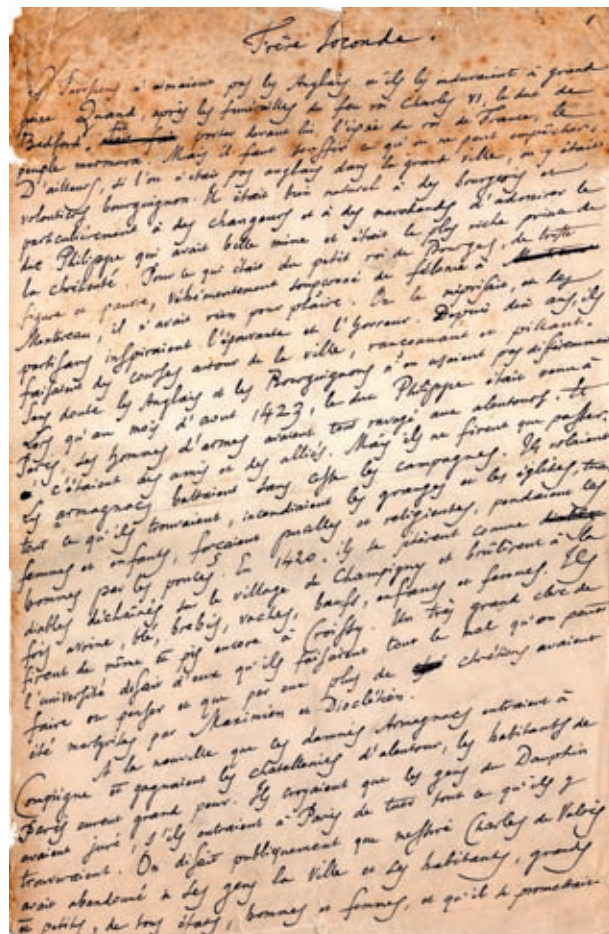 Frère Joconde.
Les Parisiens n'aimaient pas les Anglais et ils les enduraient à grand
peine. Quand, après les funérailles du feu roi Charles VI, le duc de
Bedford, fit porter devant lui, l'épée du roi de France, le
peuple murmura. Mais il faut souffrir ce qu'on ne peut empêcher.
D'ailleurs, si l'on n'était pas anglais dans la grant ville, on y était
volontiers bourguignon. Il était bien naturel à des bourgeois et
particulièrement à des changeurs et à des marchands d'admirer le
duc Philippe qui avait belle mine et était le plus riche prince de
la chrétienté. Pour ce qui était du petit roi de Bourges, de triste
figure et pauvre, véhémentement soupçonné de félonie à
Montereau, il n'avait rien pour plaire. On le méprisait, et ses
partisans inspiraient l'épouvante et l'horreur. Depuis dix ans, ils
faisaient des courses autour de la ville, rançonnant et pillant.
Sans doute les Anglais et les Bourguignons n'en usaient pas différemment
Lors qu'au mois d'aout 1423, le duc Philippe était venu à
Paris, ses hommes d'armes avaient tout ravagé aux alentours. Et
c'étaient des amis et des alliés. Mais ils ne firent que passer.
Les armagnacs battaient sans cesse les campagnes. Ils volaient
tout ce qu'ils trouvaient, incendiaient les granges et les églises, tuaient
femmes et enfants, forçaient pucelles et religieuses, pendaient les
hommes par les pouces. En 1420, ils se jetèrent comme
diables déchaînés sur le village de Champigny et brûlèrent à la
fois avoine, blé, brebis, vaches, bœufs, enfants et femmes. Ils
firent de même et pis encore à Croissy. Un très grand clerc de
l'université disait d'eux qu'ils faisaient tout le mal qu'on peut
faire ou penser et que par eux plus de chrétiens avaient
été martyrisés par Maximien et Dioclétien.
A la nouvelle que ces damnés Armagnacs entraient à
Compiègne et gagnaient les chatellenies d'alentour, les habitants de
Paris eurent grand peur. Ils croyaient que les gens du Dauphin
avaient juré, s'ils entraient à Paris de tuer tout ce qu'ils y
trouveraient. On disait publiquement que messire Charles de Valois
avait abandonné à ses gens la ville et ses habitants, grands
et petits, de tous états, hommes et femmes, et qu'il se promettait